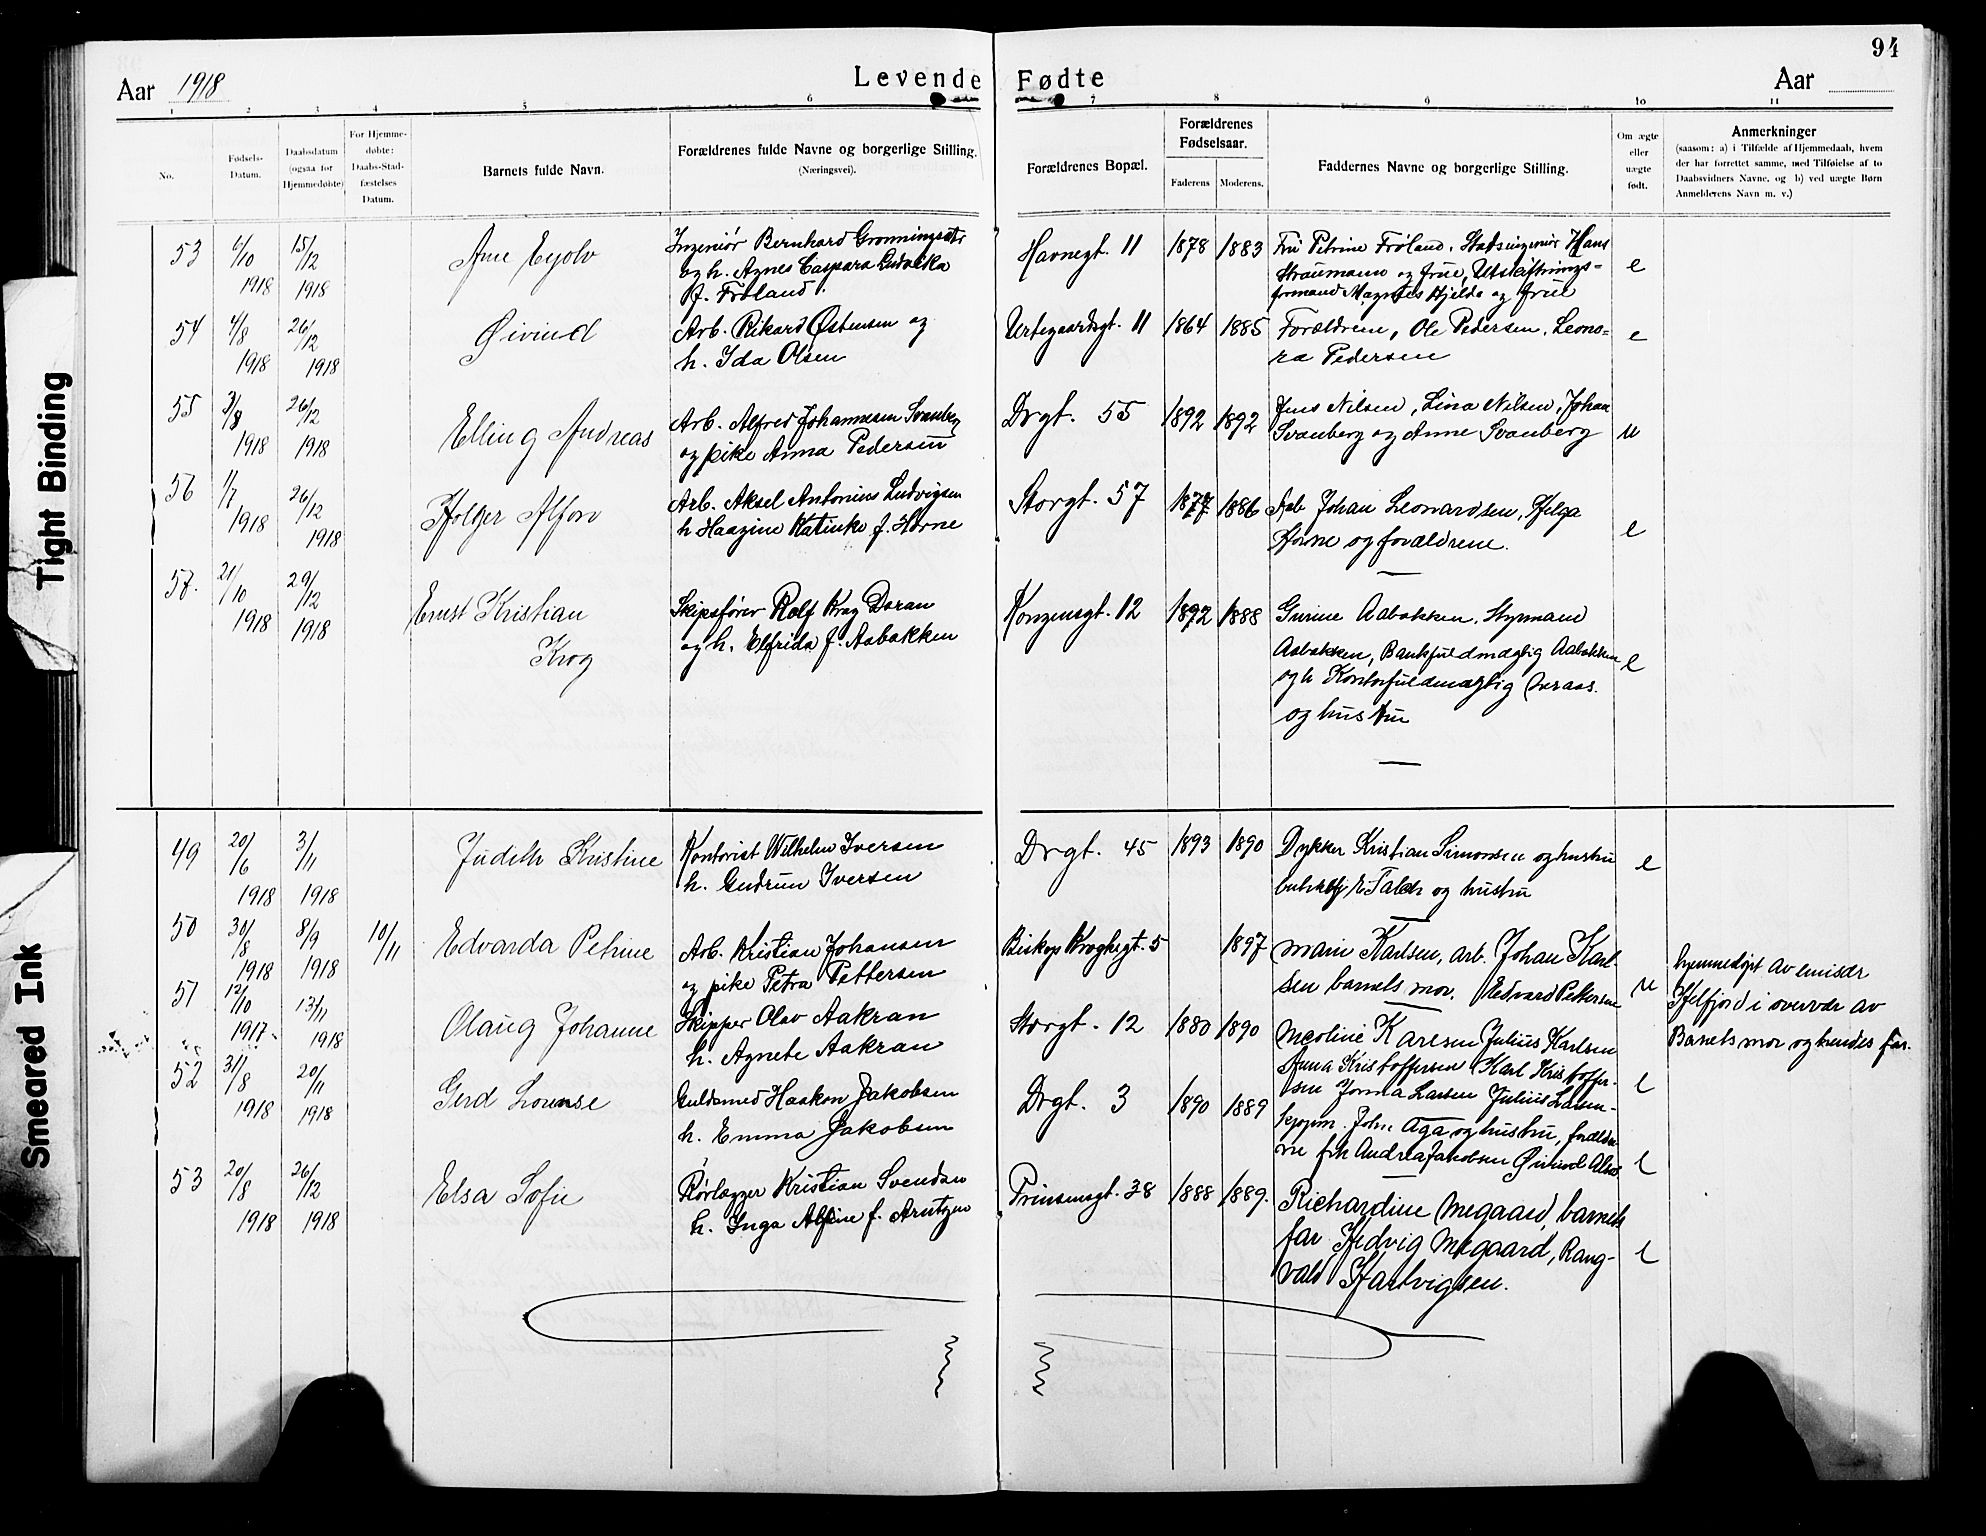 94
Aar 1918 Levende Fødte Aar
1 2 3 4 5 6 7 8 9 10 11
No.
Fødsels-
Datum.
Daabsdatum
(ogsaa for
Hjemmedøbte)
For Hjemme-
døbte:
Daabs-Stad-
fæstelses
Datum.
Barnets fulde Navn.
Forældrenes fulde Navne og borgerlige Stilling.
(Næringsvei).
Forældrenes Bopæl.
Forældrenes
Fødselsaar.
Faderens Moderens.
Faddernes Navne og borgerlige Stilling.
Om ægte
eller
uægte
født.
Anmerkninger
(saasom: a) i Tilfælde af Hjemmedaab, hvem
der har forrettet samme, med Tilføielse af to
Daabsvidners Navne. og b) ved uægte Børn
Anmelderens Navn m. v.)
53 6/10 1918 15/12 1918
Arne Eyolv
Ingeniør Bernhard Grønningsæter
og h. Agnes Caspara Ludvikka
f. Frøland.
Havnegt. 11 1878 1883
Fru Petrine Frøland, Stadsingeniør Hans
Straumann og frue, Utskiftnings-
formand Magnus Hjelde og frue
e
54 4/8 1918 26/12 1918
Øivind
Arb. Rikard Østensen og
h. Ida Olsen
Urtegaardsgt. 11 1864 1885
Forældrene, Ole Pedersen, Leono-
ra Pedersen
e
55 3/8 1918 26/12 1918
Elling Andreas
Arb. Alfred Johannesen Svanberg
og pike Anna Pedersen
Drgt. 55 1892 1892
Jens Nilsen, Lina Nilsen, Johan
Svanberg og Anne Svanberg
u
56 1/7 1918 26/12 1918
Holger Alfon
Arb. Aksel Antonius Ludvigsen
h Haagine Katinke f. Horne
Storgt. 57 1877 1886
Arb Johan Leonardsen, Helga
Horne og forældrene.
e
57. 21/10 1918 29/12 1918
Ernst Kristian
Krog
Skipsfører Rolf Krog Doran
og h. Elfrida f. Aabakken
Kongensgt. 12 1892 1888
Gurine Aabakken, Styrmand
Aabakken, Bankfuldmægtig Aabakken
og h Kontorfuldmægtig
og hustru
e
49 20/6 1918 3/11 1918
Judith Kristine
Kontorist Wilhelm Iversen
h. Gudrun Iversen
Drgt. 45 1893 1890
Dykker Kristian Simonsen og hustru
E Falch og hustru
e
50 30/8 1918 8/9 1918 10/11
Edvarda Petrine
Arb. Kristian Johansen
og pike Petra Pettersen
Biskop Kroghsgt. 5 1897
Marie Karlsen, arb. Johan Karl-
sen barnets mor. Edvard Pettersen
u
hjemmedøpt av emisær
Helfjord i overvær av
Barnets mor og hendes far.
51 12/10 1917 13/11 1918
Olaug Johanne
Skipper Olav Aakran
h. Agnete Aakran
Storgt. 12 1880 1890
Meoline Karlsen Julius Karlsen
Anna Kristoffersen Karl Kristoffer-
sen Jorma Larsen Julius Larsen
e
52 31/8 1918 20/11 1918
Gerd Lovnse
Guldsmed Haakon Jakobsen
h. Emma Jakobsen
Drgt. 3 1890 1889
kjøpm. John Aga og hustru, foreldre-
ne frk Andrea Jakobsen Øivind
e
53 20/8 1918 26/12 1918
Elsa Sofie
Rørlægger Kristian Svendsen
h. Inga Alfine f. Arntzen
Prinsensgt. 38 1888 1889.
Richardine Megaard, barnets
far, Hedvig Megaard, Rang-
vald Hartvigsen.
e
Tight Binding
Smeared Ink